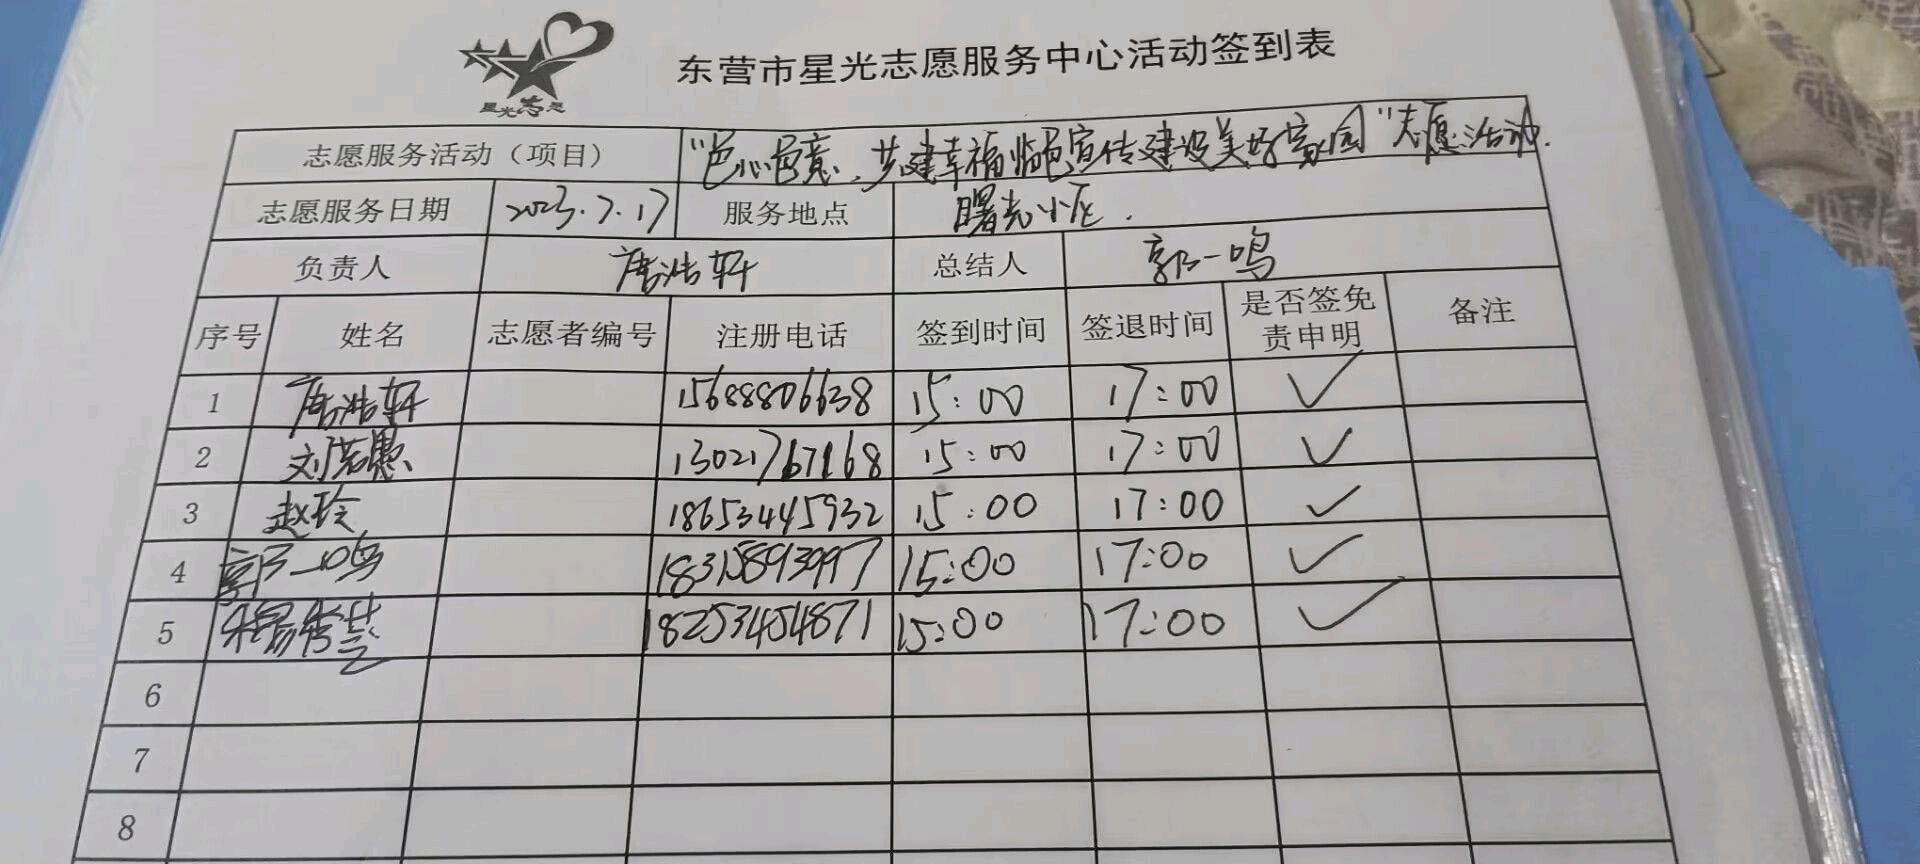 星光志愿
东营市星光志愿服务中心活动签到表
志愿服务活动（项目） "邑心邑意，共建幸福临邑宣传建设美好家园"志愿活动.
志愿服务日期 2023.7.17 服务地点 曙光小区.
负责人 唐浩轩 总结人 郭一鸣
序号 姓名 志愿者编号 注册电话 签到时间 签退时间 是否签免责申明 备注
1 唐浩轩 15688806638 15:00 17:00 ✓
2 刘若愚 13021767168 15:00 17:00 ✓
3 赵玲 18653445932 15:00 17:00 ✓
4 郭一鸣 18315893997 15:00 17:00 ✓
5 18253454871 15:00 17:00 ✓
6
7
8